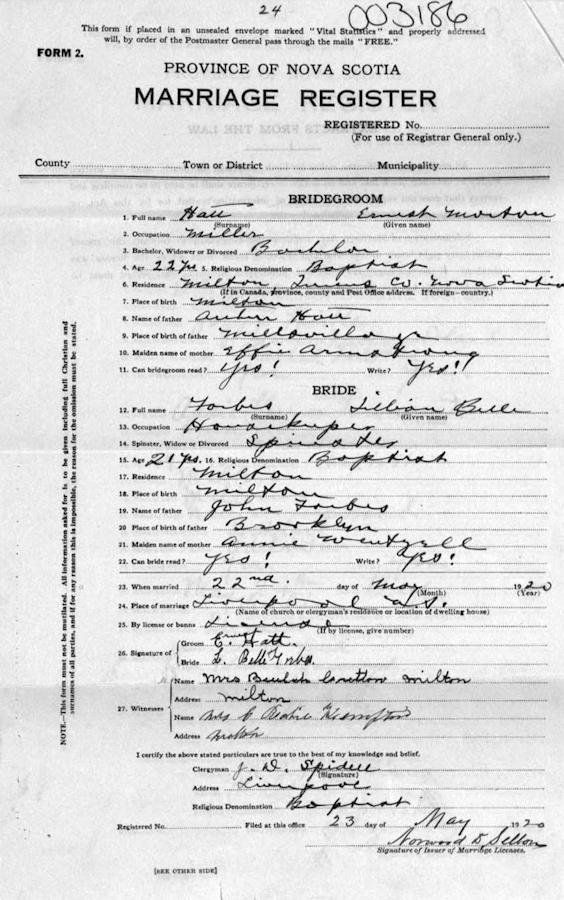 24
003186
This form if placed in an unsealed envelope marked "Vital Statistics" and properly addressed
will, by order of the Postmaster General pass through the mails "FREE."
FORM 2.
PROVINCE OF NOVA SCOTIA
MARRIAGE REGISTER
REGISTERED No.
(For use of Registrar General only.)
County Town or District Municipality
BRIDEGROOM
1. Full name Hatt Ernest Morton
(Surname) (Given name)
2. Occupation Miller
3. Bachelor, Widower or Divorced Bachelor
4. Age 22 yrs 5. Religious Denomination Baptist
6. Residence Milton, Queens Co. Nova Scotia
(If in Canada, province, county and Post Office address. If foreign—country.)
7. Place of birth Milton
8. Name of father Hatt
9. Place of birth of father
10. Maiden name of mother Effie Armstrong
11. Can bridegroom read? Yes! Write? Yes!!
BRIDE
12. Full name Forbes Lillian Belle
(Surname) (Given name)
13. Occupation Housekeeper
14. Spinster, Widow or Divorced Spinster
15. Age 21 yrs. 16. Religious Denomination Baptist
17. Residence Milton
18. Place of birth Milton
19. Name of father John Forbes
20 Place of birth of father Brooklyn
21. Maiden name of mother Annie Wentzell
22. Can bride read? Yes! Write? Yes!
23. When married 22nd. day of May 1920
(Month) (Year)
24. Place of marriage Liverpool N.S.
(Name of church or clergyman's residence or location of dwelling house)
25. By license or banns License
(If by license, give number)
26. Signature of Groom Ernest E. Hatt.
Bride L. Belle Forbes.
27. Witnesses Name Mrs Beulah Milton
Address Milton
Name Mrs
Address Milton
I certify the above stated particulars are true to the best of my knowledge and belief.
Clergyman J. D. Spidell
(Signature)
Address Liverpool
Religious Denomination Baptist
Registered No. Filed at this office 23 day of May 1920
Norwood D Sellon
Signature of Issuer of Marriage Licenses.
[SEE OTHER SIDE]
NOTE.—This form must not be mutilated. All information asked for is to be given including full Christian and
surnames of all parties, and if for any reason this is impossible, the reason for the omission must be stated.